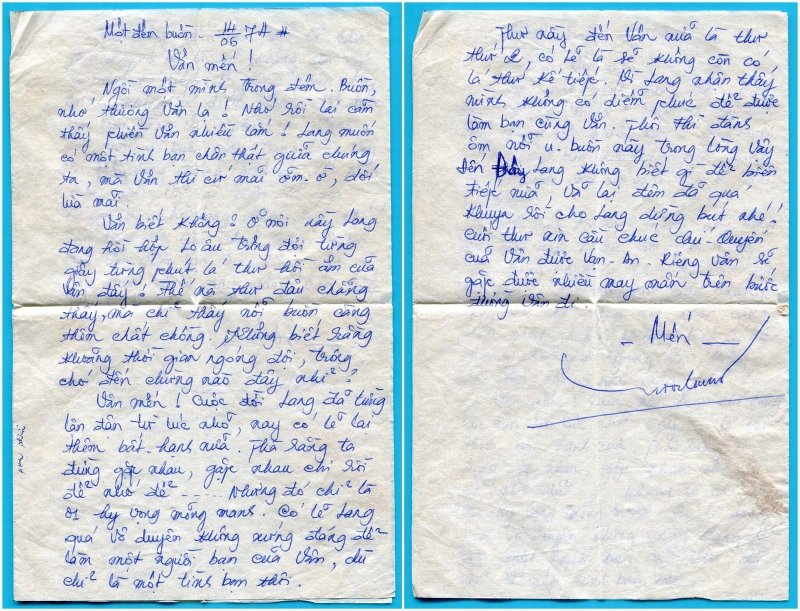 Một đêm buồn - 14/06 7A #
Vân mến !
Ngồi một mình trong đêm. Buồn,
nhớ thương Vân lạ ! Nhớ rồi lại cảm
thấy phiền Vân nhiều lắm ! Lang muốn
có một tình bạn chân thật giữa chúng
ta, mà Vân thì cứ mãi ỡm-ờ, dối
lừa mãi.
Vân biết không ? Ở nơi này Lang
đang hồi hộp lo âu trông đợi từng
giây từng phút lá thư hồi âm của
Vân đấy ! Thế mà thư đâu chẳng
thấy, mà chỉ thấy nỗi buồn càng
thêm chất chồng. Không biết rằng
khoảng thời gian ngóng đợi, trông
chờ đến chừng nào đây nhỉ ?
Vân mến ! Cuộc đời Lang đã từng
lận đận từ lúc nhỏ, nay có lẽ lại
thêm bất-hạnh nữa. Thà rằng ta
đừng gặp nhau, gặp nhau chi rồi
để nhớ để ..... Nhưng đó chỉ là
01 hy vọng mỏng manh. Có lẽ Lang
quá vô duyên không xứng đáng để
làm một người bạn của Vân, dù
chỉ là một tình bạn thôi.
Thư này đến Vân nữa là thư
thứ 2, có lẽ là sẽ không còn có
lá thư kế tiếp. Vì Lang nhận thấy
mình không có diễm phúc để được
làm bạn cùng Vân. Thôi thì đành
ôm nỗi u-buồn này trong lòng vậy
Đến đây Lang không biết gì để biên
tiếp nữa. Vả lại đêm đã quá
khuya rồi cho Lang dừng bút nhé !
cuối thư xin cầu chúc quí-quyến
của Vân được Vạn-An. Riêng Vân sẽ
gặp được nhiều may mắn trên bước
đường Vân đi.
- Mến -